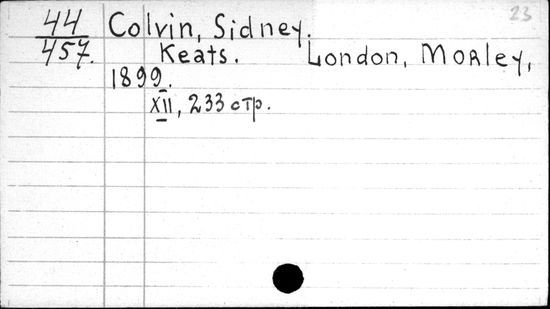 23
44 Colvin, Sidney.
457. Keats. London, Morley,
1899.
XII, 233 стр.